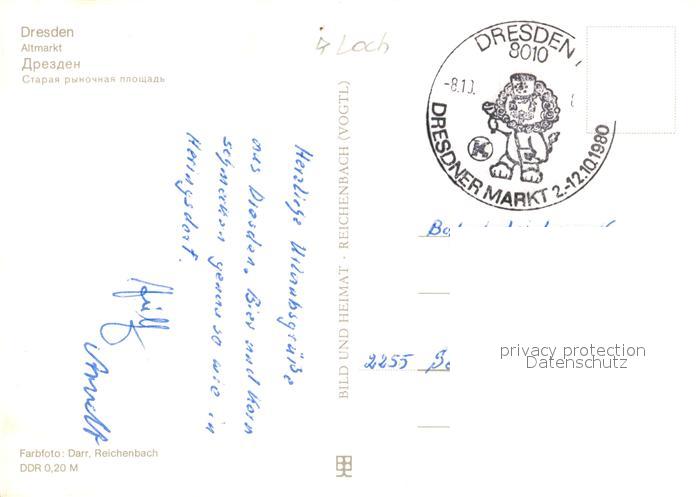 Dresden
Altmarkt
Дрезден
Старая рыночная площадь
Loch
DRESDEN
8010
-8.10.
DRESDNER MARKT 2.-12.10.1980
Herzliche Urlaubsgrüße
aus Dresden. Bier und Korn
schmecken genau so wie in
Heringsdorf.
BILD UND HEIMAT · REICHENBACH (VOGTL)
2255
privacy protection
Datenschutz
Farbfoto: Darr, Reichenbach
DDR 0,20 M